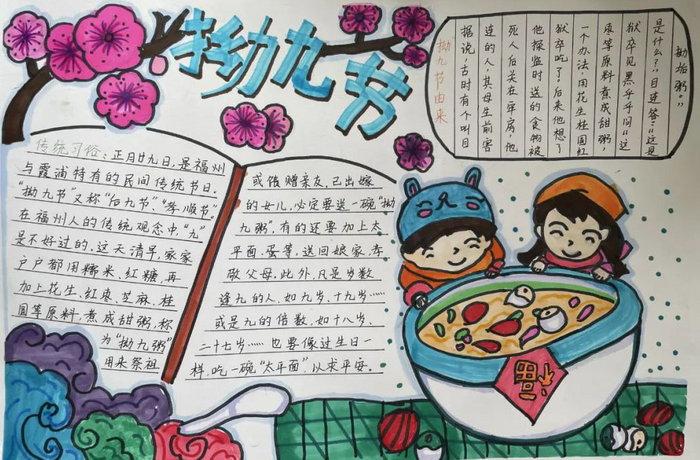 拗九节
拗九节由来
据说，古时有个叫目
连的人，其母生前害
死人后关在牢房，他
他探监时送的食物被
狱卒吃了，后来他想了
一个办法，用花生桂圆红
枣等原料煮成甜粥，
狱卒见黑乎乎问：“这
是什么？”目连答：“这是
拗垢粥。”
传统习俗：正月廿九日，是福州
与霞浦特有的民间传统节日。
“拗九节”又称“后九节”“孝顺节”
在福州人的传统观念中，“九”
是不好过的。这天清早，家家
户户都用糯米、红糖，再
加上花生、红枣、芝麻、桂
圆等原料，煮成甜粥，称
为“拗九粥”
用来祭祖
或馈赠亲友。已出嫁
的女儿，必定要送一碗“拗
九粥”，有的还要加上太
平面、蛋等，送回娘家孝
敬父母。此外，凡是岁数
逢九的人，如九岁、十九岁……
或是九的倍数，如十八岁、
二十七岁……也要像过生日一
样，吃一碗“太平面”以求平安。
福